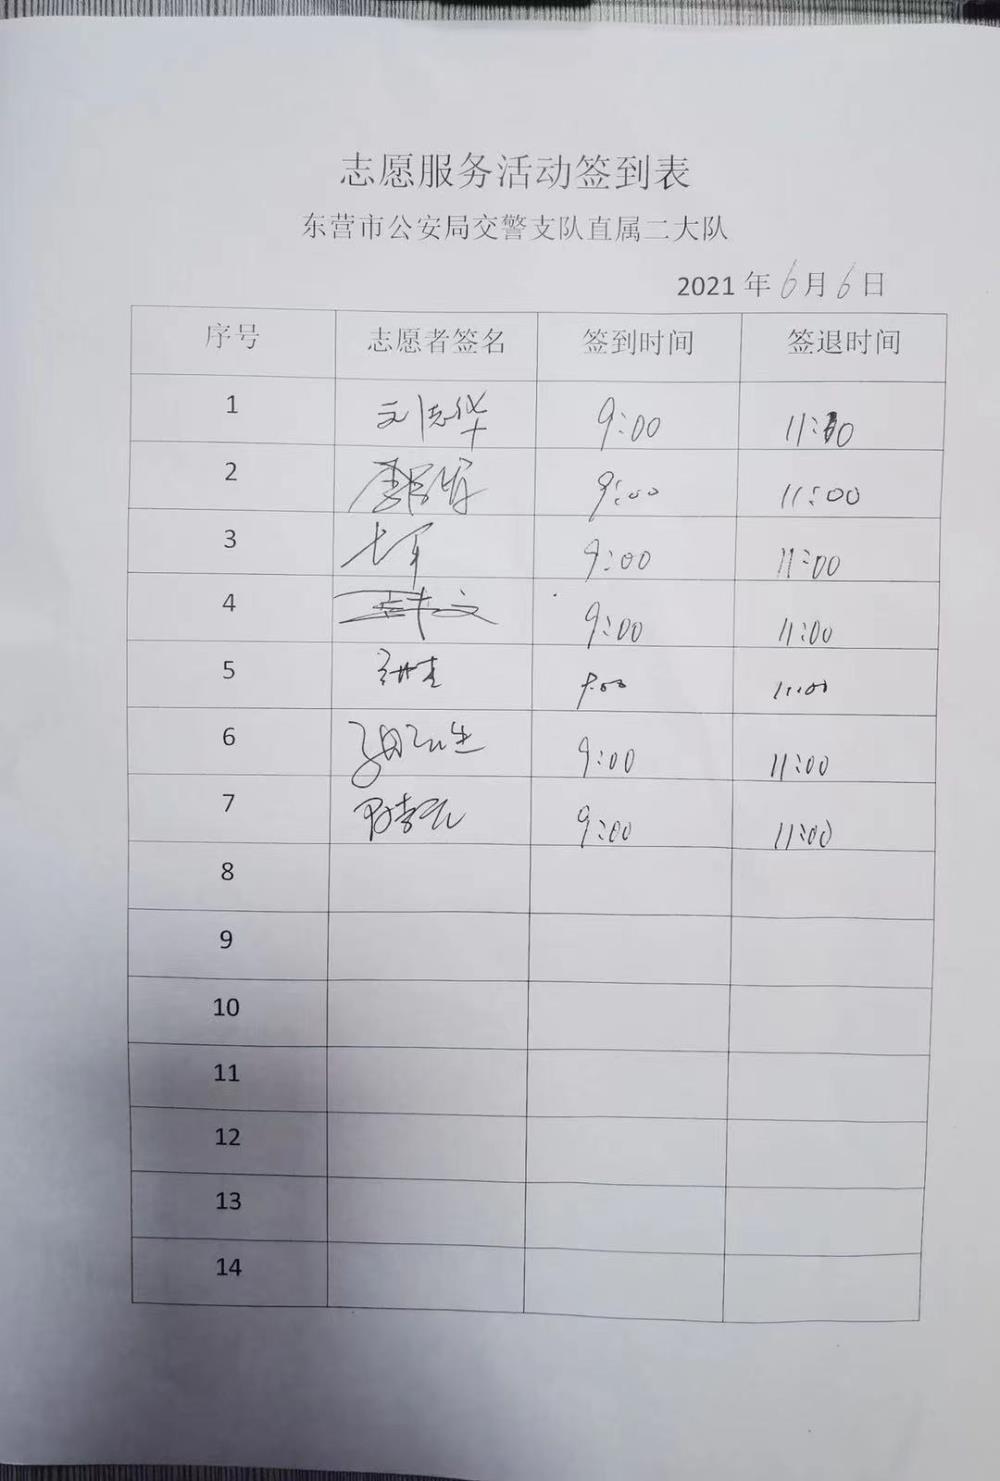 志愿服务活动签到表
东营市公安局交警支队直属二大队
2021 年 6 月 6 日
序号 志愿者签名 签到时间 签退时间
1 刘志华 9:00 11:00
2 9:00 11:00
3 9:00 11:00
4 9:00 11:00
5 9:00 11:00
6 9:00 11:00
7 9:00 11:00
8
9
10
11
12
13
14